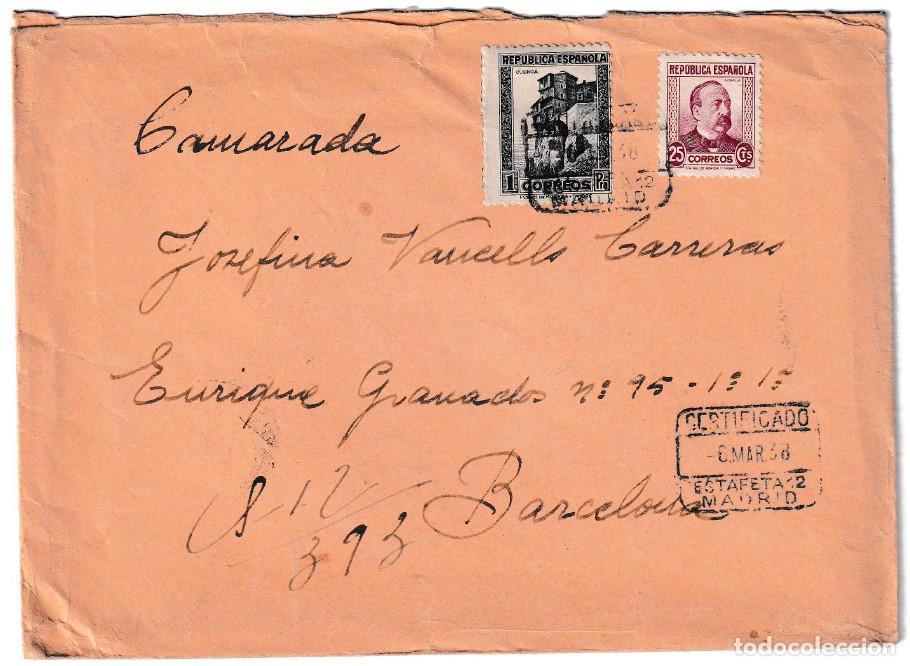 REPÚBLICA ESPAÑOLA
CUENCA
1 CORREOS Pta
REPÚBLICA ESPAÑOLA
25 CORREOS Cts
38
12
MADRID
Camarada
Josefina Vancells Carreras
Enrique Granados nº 95-1º 1ª
CERTIFICADO
-6.MAR.38
ESTAFETA 12
MADRID
S 12
393
Barcelona
todocoleccion